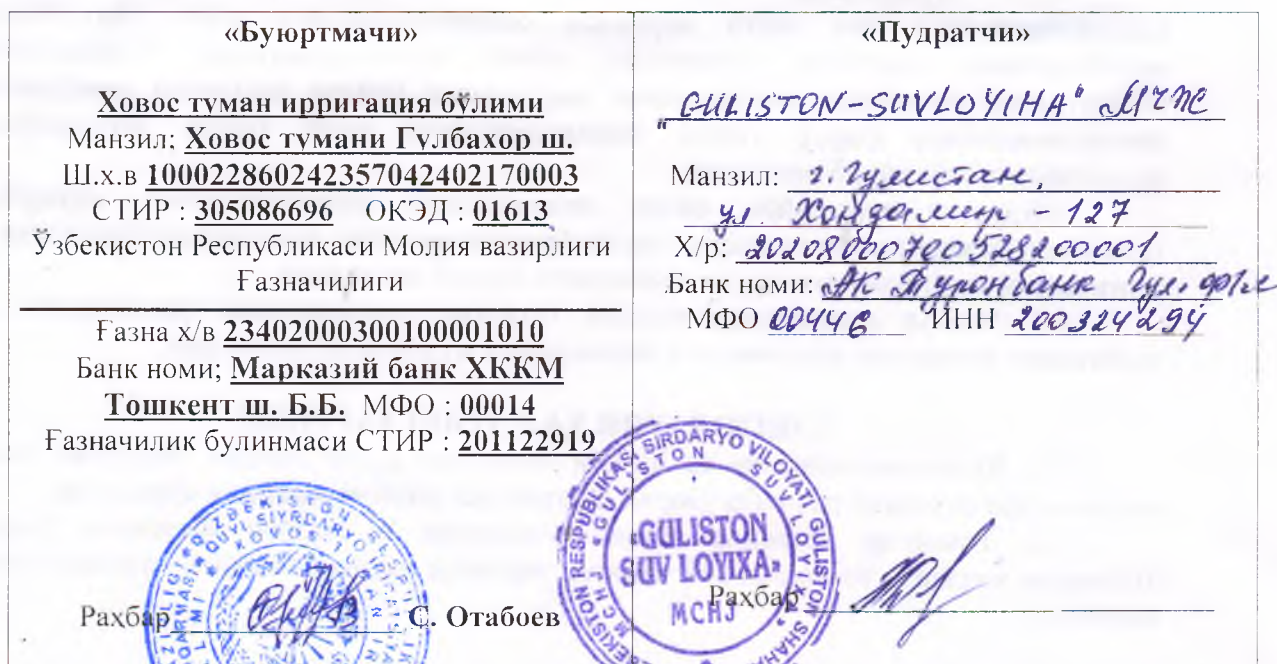 «Буюртмачи»
Ховос туман ирригация бўлими
Манзил; Ховос тумани Гулбахор ш.
Ш.х.в 100022860242357042402170003
СТИР : 305086696 ОКЭД : 01613
Ўзбекистон Республикаси Молия вазирлиги
Ғазначилиги
Ғазна х/в 23402000300100001010
Банк номи; Марказий банк ХККМ
Тошкент ш. Б.Б. МФО : 00014
Ғазначилик булинмаси СТИР : 201122919
Раҳбар С. Отабоев
«Пудратчи»
"GULISTON-SUVLOYIHA" МЧЖ
Манзил: г. Гулистан,
ул Хондамир - 127
Х/р: 20208000700528200001
Банк номи: АК Туронбанк Гул. фил
МФО 00446 ИНН 200324294
Раҳбар
SIRDARYO VILOYATI, GULISTON SHAH
«GULISTON
SUV LOYIXA»
MCHJ